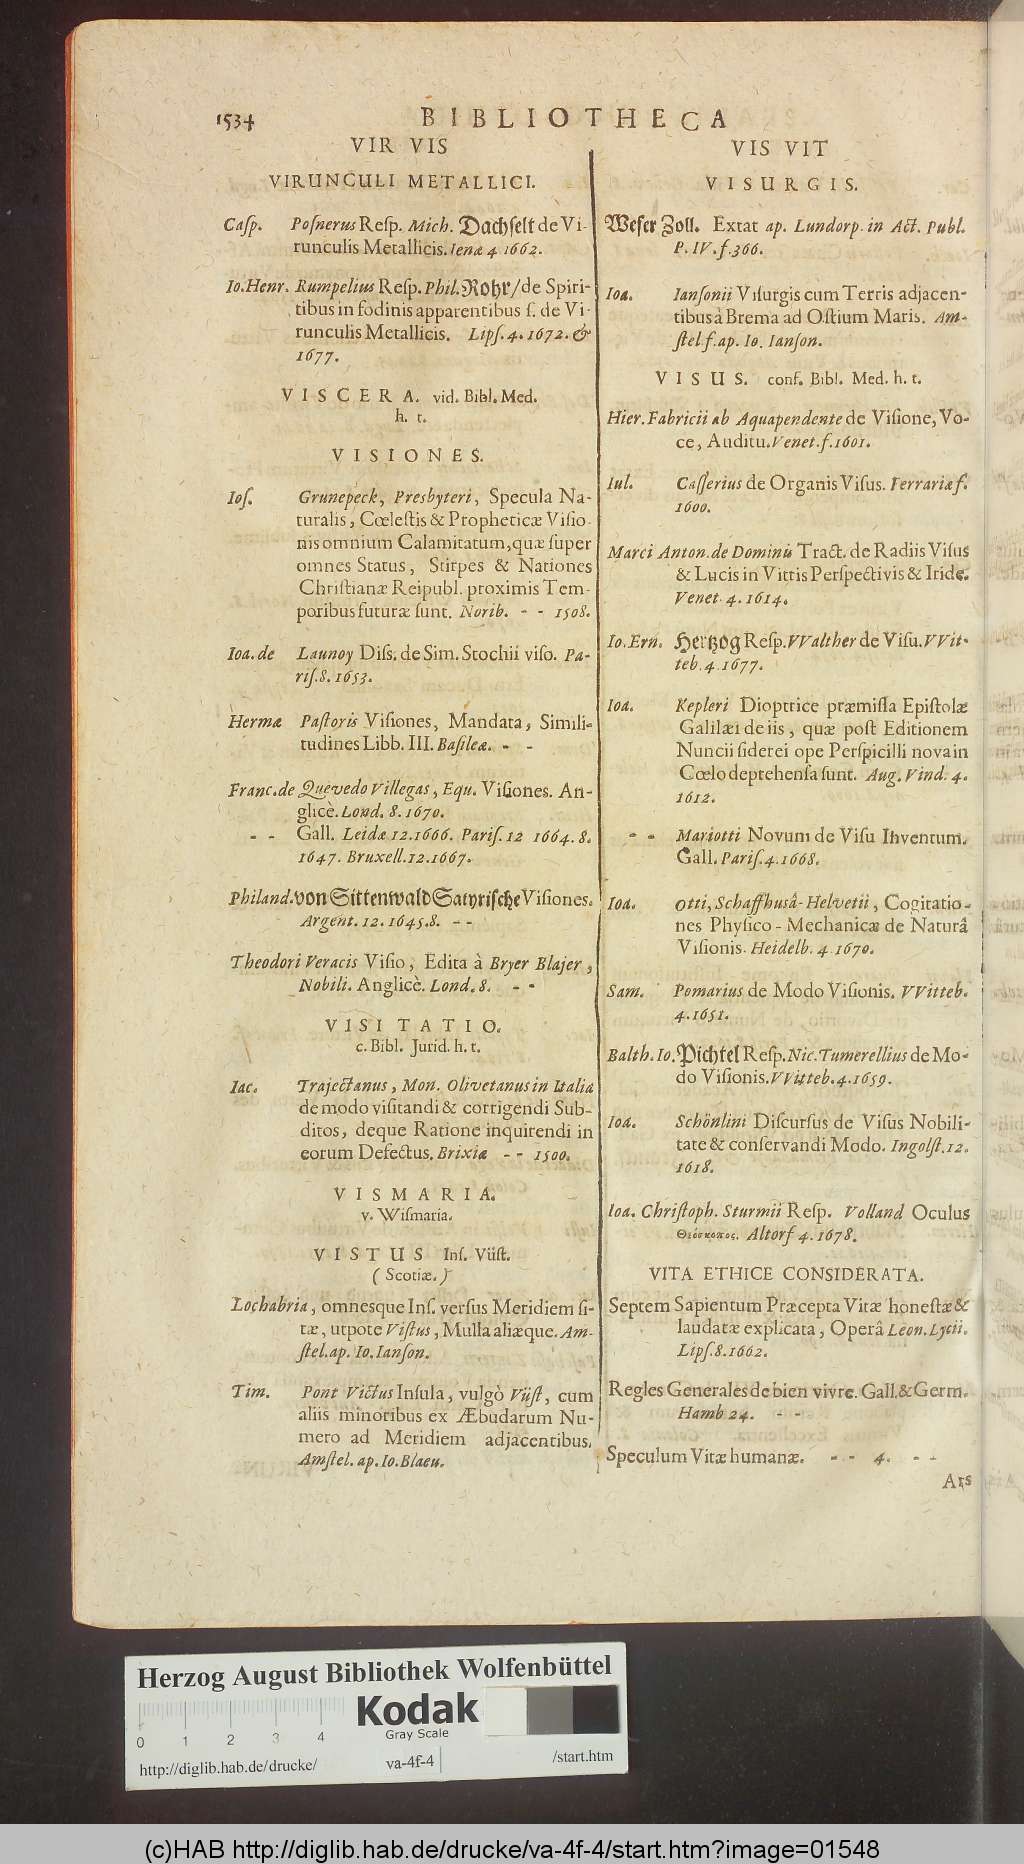 1534 BIBLIOTHECA
VIR VIS
VIRUNCULI METALLICI.
Casp. Posnerus Resp. Mich. Dachselt de Vi-
runculis Metallicis. Ienæ 4 1662.
Io. Henr. Rumpelius Resp. Phil. Rohr / de Spiri-
tibus in fodinis apparentibus s. de Vi-
runculis Metallicis. Lips. 4. 1672. &
1677.
VISCERA. vid. Bibl. Med.
h. t.
VISIONES.
Ios. Grunepeck, Presbyteri, Specula Na-
turalis, Cœlestis & Propheticæ Visio
nis omnium Calamitatum, quæ super
omnes Status, Stirpes & Nationes
Christianæ Reipubl. proximis Tem-
poribus futuræ sunt. Norib. - - 1508.
Ioa. de Launoy Diss. de Sim. Stochii viso. Pa-
ris. 8. 1653.
Hermæ Pastoris Visiones, Mandata, Simili-
tudines Libb. III. Basileæ. - -
Franc. de Quevedo Villegas, Equ. Visiones. An-
glicè. Lond. 8. 1670.
- - Gall. Leidæ 12. 1666. Paris. 12 1664. 8.
1647. Bruxell. 12. 1667.
Philand. von Sittenwald Satyrische Visiones.
Argent. 12. 1645. 8. - -
Theodori Veracis Visio, Edita à Bryer Blajer,
Nobili. Anglicè. Lond. 8. - -
VISITATIO.
c. Bibl. Jurid. h. t.
Iac. Trajectanus, Mon. Olivetanus in Italia
de modo visitandi & corrigendi Sub-
ditos, deque Ratione inquirendi in
eorum Defectus. Brixiæ - - 1500.
VISMARIA.
v. Wismaria.
VISTUS Ins. Vüst.
(Scotiæ.)
Lochabria, omnesque Ins. versus Meridiem si-
tæ, utpote Vistus, Mulla aliæque. Am-
stel. ap. Io. Ianson.
Tim. Pont Victus Insula, vulgò Vüst, cum
aliis minoribus ex Æbudarum Nu-
mero ad Meridiem adjacentibus.
Amstel. ap. Io. Blaeu.
VIS VIT
VISURGIS.
Weser Zoll. Extat ap. Lundorp. in Act. Publ.
P. IV. f. 366.
Ioa. Iansonii Visurgis cum Terris adjacen-
tibus à Brema ad Ostium Maris. Am-
stel. f. ap. Io. Ianson.
VISUS. conf. Bibl. Med. h. t.
Hier. Fabricii ab Aquapendente de Visione, Vo-
ce, Auditu. Venet. f. 1601.
Iul. Casserius de Organis Visus. Ferrariæ f.
1600.
Marci Anton. de Dominis Tract. de Radiis Visus
& Lucis in Vitris Perspectivis & Iride.
Venet. 4. 1614.
Io. Ern. Hertzog Resp. VValther de Visu. VVit-
teb. 4. 1677.
Ioa. Kepleri Dioptrice præmissa Epistolæ
Galilæi de iis, quæ post Editionem
Nuncii siderei ope Perspicilli nova in
Cœlo deptehensa sunt. Aug. Vind. 4.
1612.
- - Mariotti Novum de Visu Inventum.
Gall. Paris. 4. 1668.
Ioa. Otti, Schaffhusâ-Helvetii, Cogitatio-
nes Physico-Mechanicæ de Naturâ
Visionis. Heidelb. 4 1670.
Sam. Pomarius de Modo Visionis. VVitteb.
4. 1651.
Balth. Io. Pichtel Resp. Nic. Tumerellius de Mo-
do Visionis. VVitteb. 4. 1659.
Ioa. Schönlini Discursus de Visus Nobili-
tate & conservandi Modo. Ingolst. 12.
1618.
Ioa. Christoph. Sturmii Resp. Volland Oculus
Θεόσκοπος. Altorf 4. 1678.
VITA ETHICE CONSIDERATA.
Septem Sapientum Præcepta Vitæ honestæ &
laudatæ explicata, Operâ Leon. Lycii.
Lips. 8. 1662.
Regles Generales de bien vivre. Gall. & Germ.
Hamb 24. - -
Speculum Vitæ humanæ. - - 4. - -
Ars
Herzog August Bibliothek Wolfenbüttel
Kodak
Gray Scale
0 1 2 3 4
http://diglib.hab.de/drucke/ va-4f-4 /start.htm
(c)HAB http://diglib.hab.de/drucke/va-4f-4/start.htm?image=01548